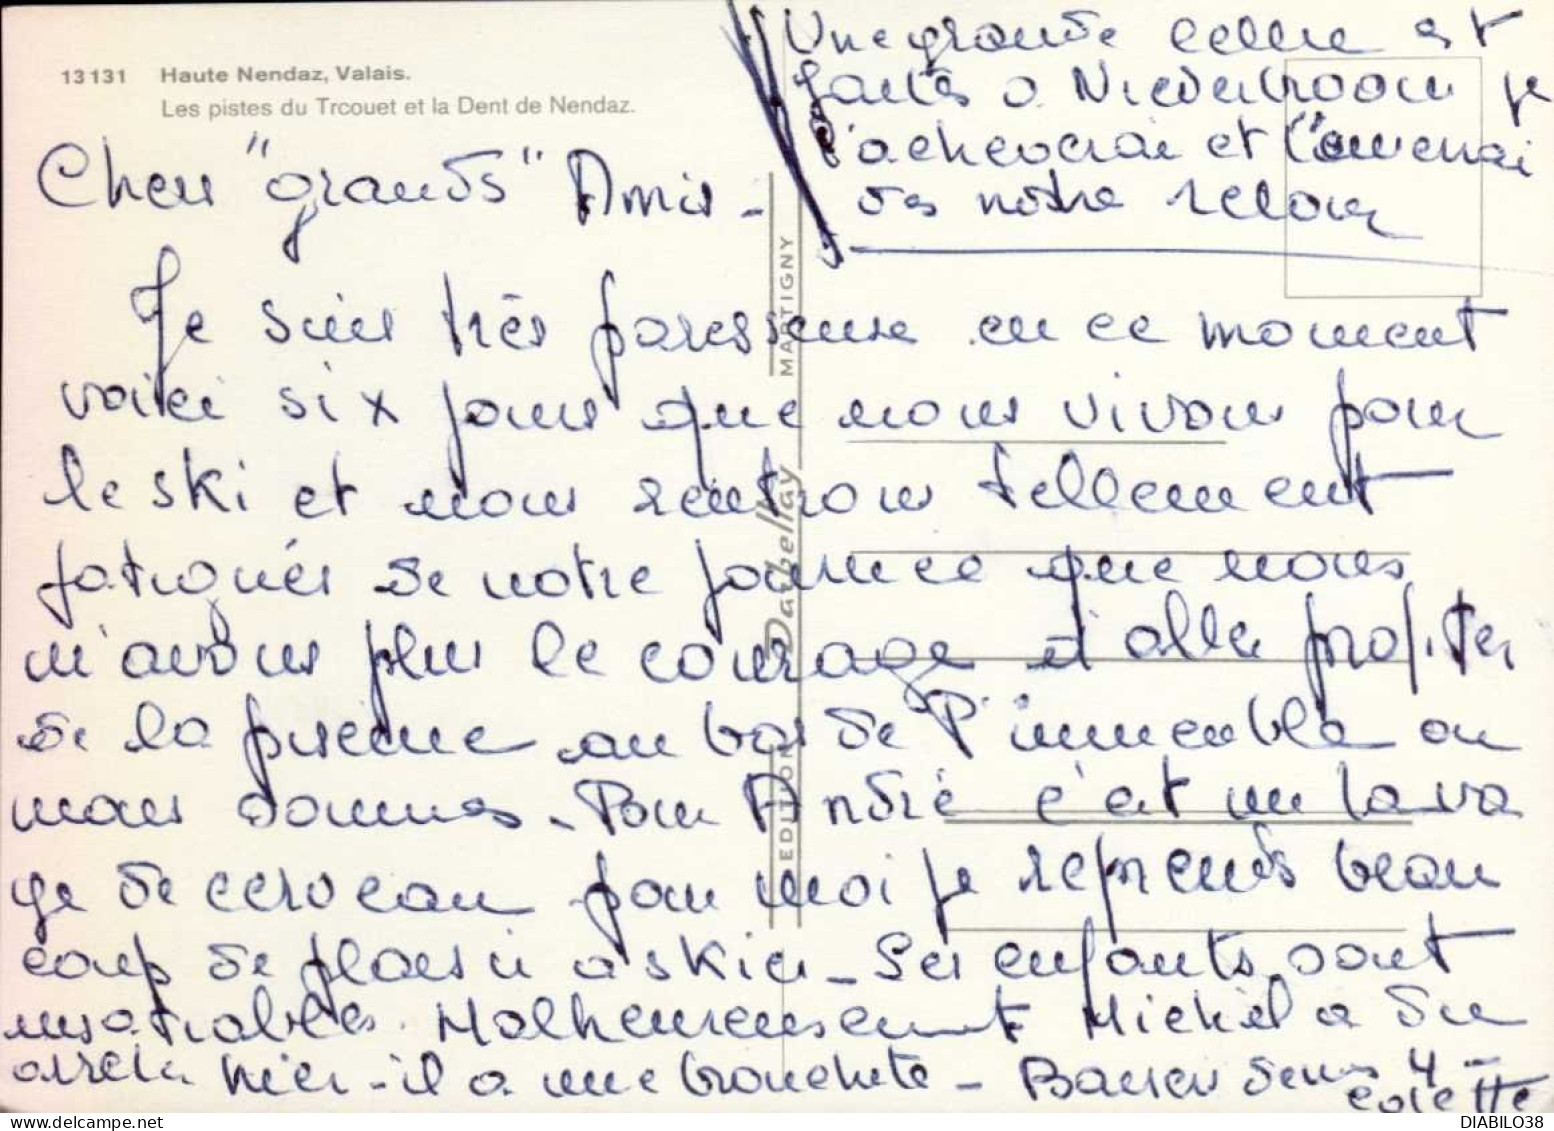 13131 Haute Nendaz, Valais.
Les pistes du Trcouet et la Dent de Nendaz.
Une grande lettre est
faite à je
l'achèverai et l'enverrai
dès notre retour
Cher "grands" Amis -
Je suis très paresseuse en ce moment
voici six jours que nous vivons pour
le ski et nous rentrons tellement
fatigués de notre journée que nous
n'avons plus le courage d'aller profiter
de la piscine au bas de l'immeuble où
nous sommes - Pour André c'est un lava
ge de cerveau pour moi je reprends beau
coup de plaisir à skier - Les enfants sont
insatiables. Malheureusement Michel a du
arrêter hier - il a une bronchite - Baisers de nous 4 -
Colette
EDITION Darbellay MARTIGNY
DIABILO38